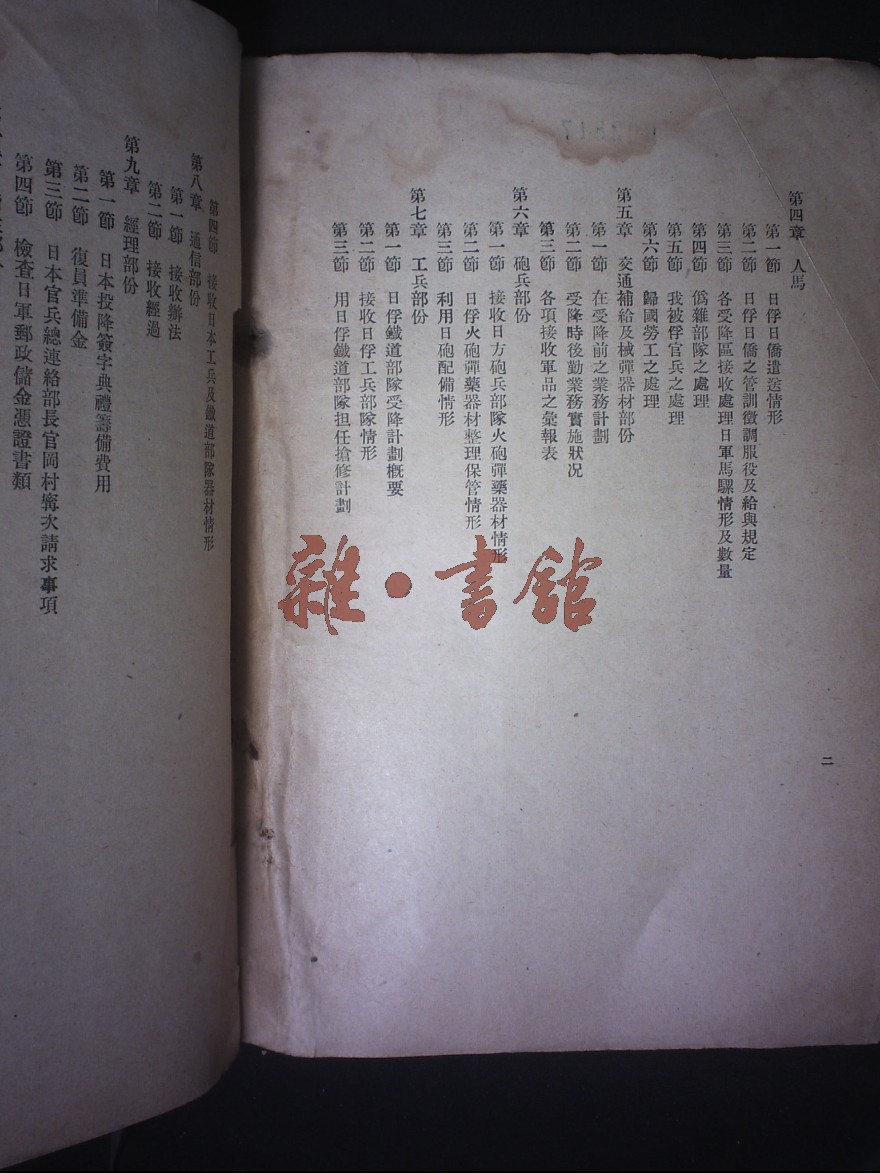 第四章 人馬
第一節 日俘日僑遣送情形
第二節 日俘日僑之管訓徵調服役及給與規定
第三節 各受降區接收處理日軍馬騾情形及數量
第四節 僞雜部隊之處理
第五節 我被俘官兵之處理
第六節 歸國勞工之處理
第五章 交通補給及械彈器材部份
第一節 在受降前之業務計劃
第二節 受降時後勤業務實施狀况
第三節 各項接收軍品之彙報表
第六章 砲兵部份
第一節 接收日方砲兵部隊火砲彈藥器材情形
第二節 日俘火砲彈藥器材整理保管情形
第三節 利用日砲配備情形
第七章 工兵部份
第一節 日俘鐵道部隊受降計劃概要
第二節 接收日俘工兵部隊情形
第三節 用日俘鐵道部隊担任搶修計劃
二
第四節 接收日本工兵及鐵道部隊器材情形
第八章 通信部份
第一節 接收辦法
第二節 接收經過
第九章 經理部份
第一節 日本投降簽字典禮籌備費用
第二節 復員準備金
第三節 日本官兵總連絡部長官岡村寧次請求事項
第四節 檢查日軍郵政儲金憑證書類
雜·書館